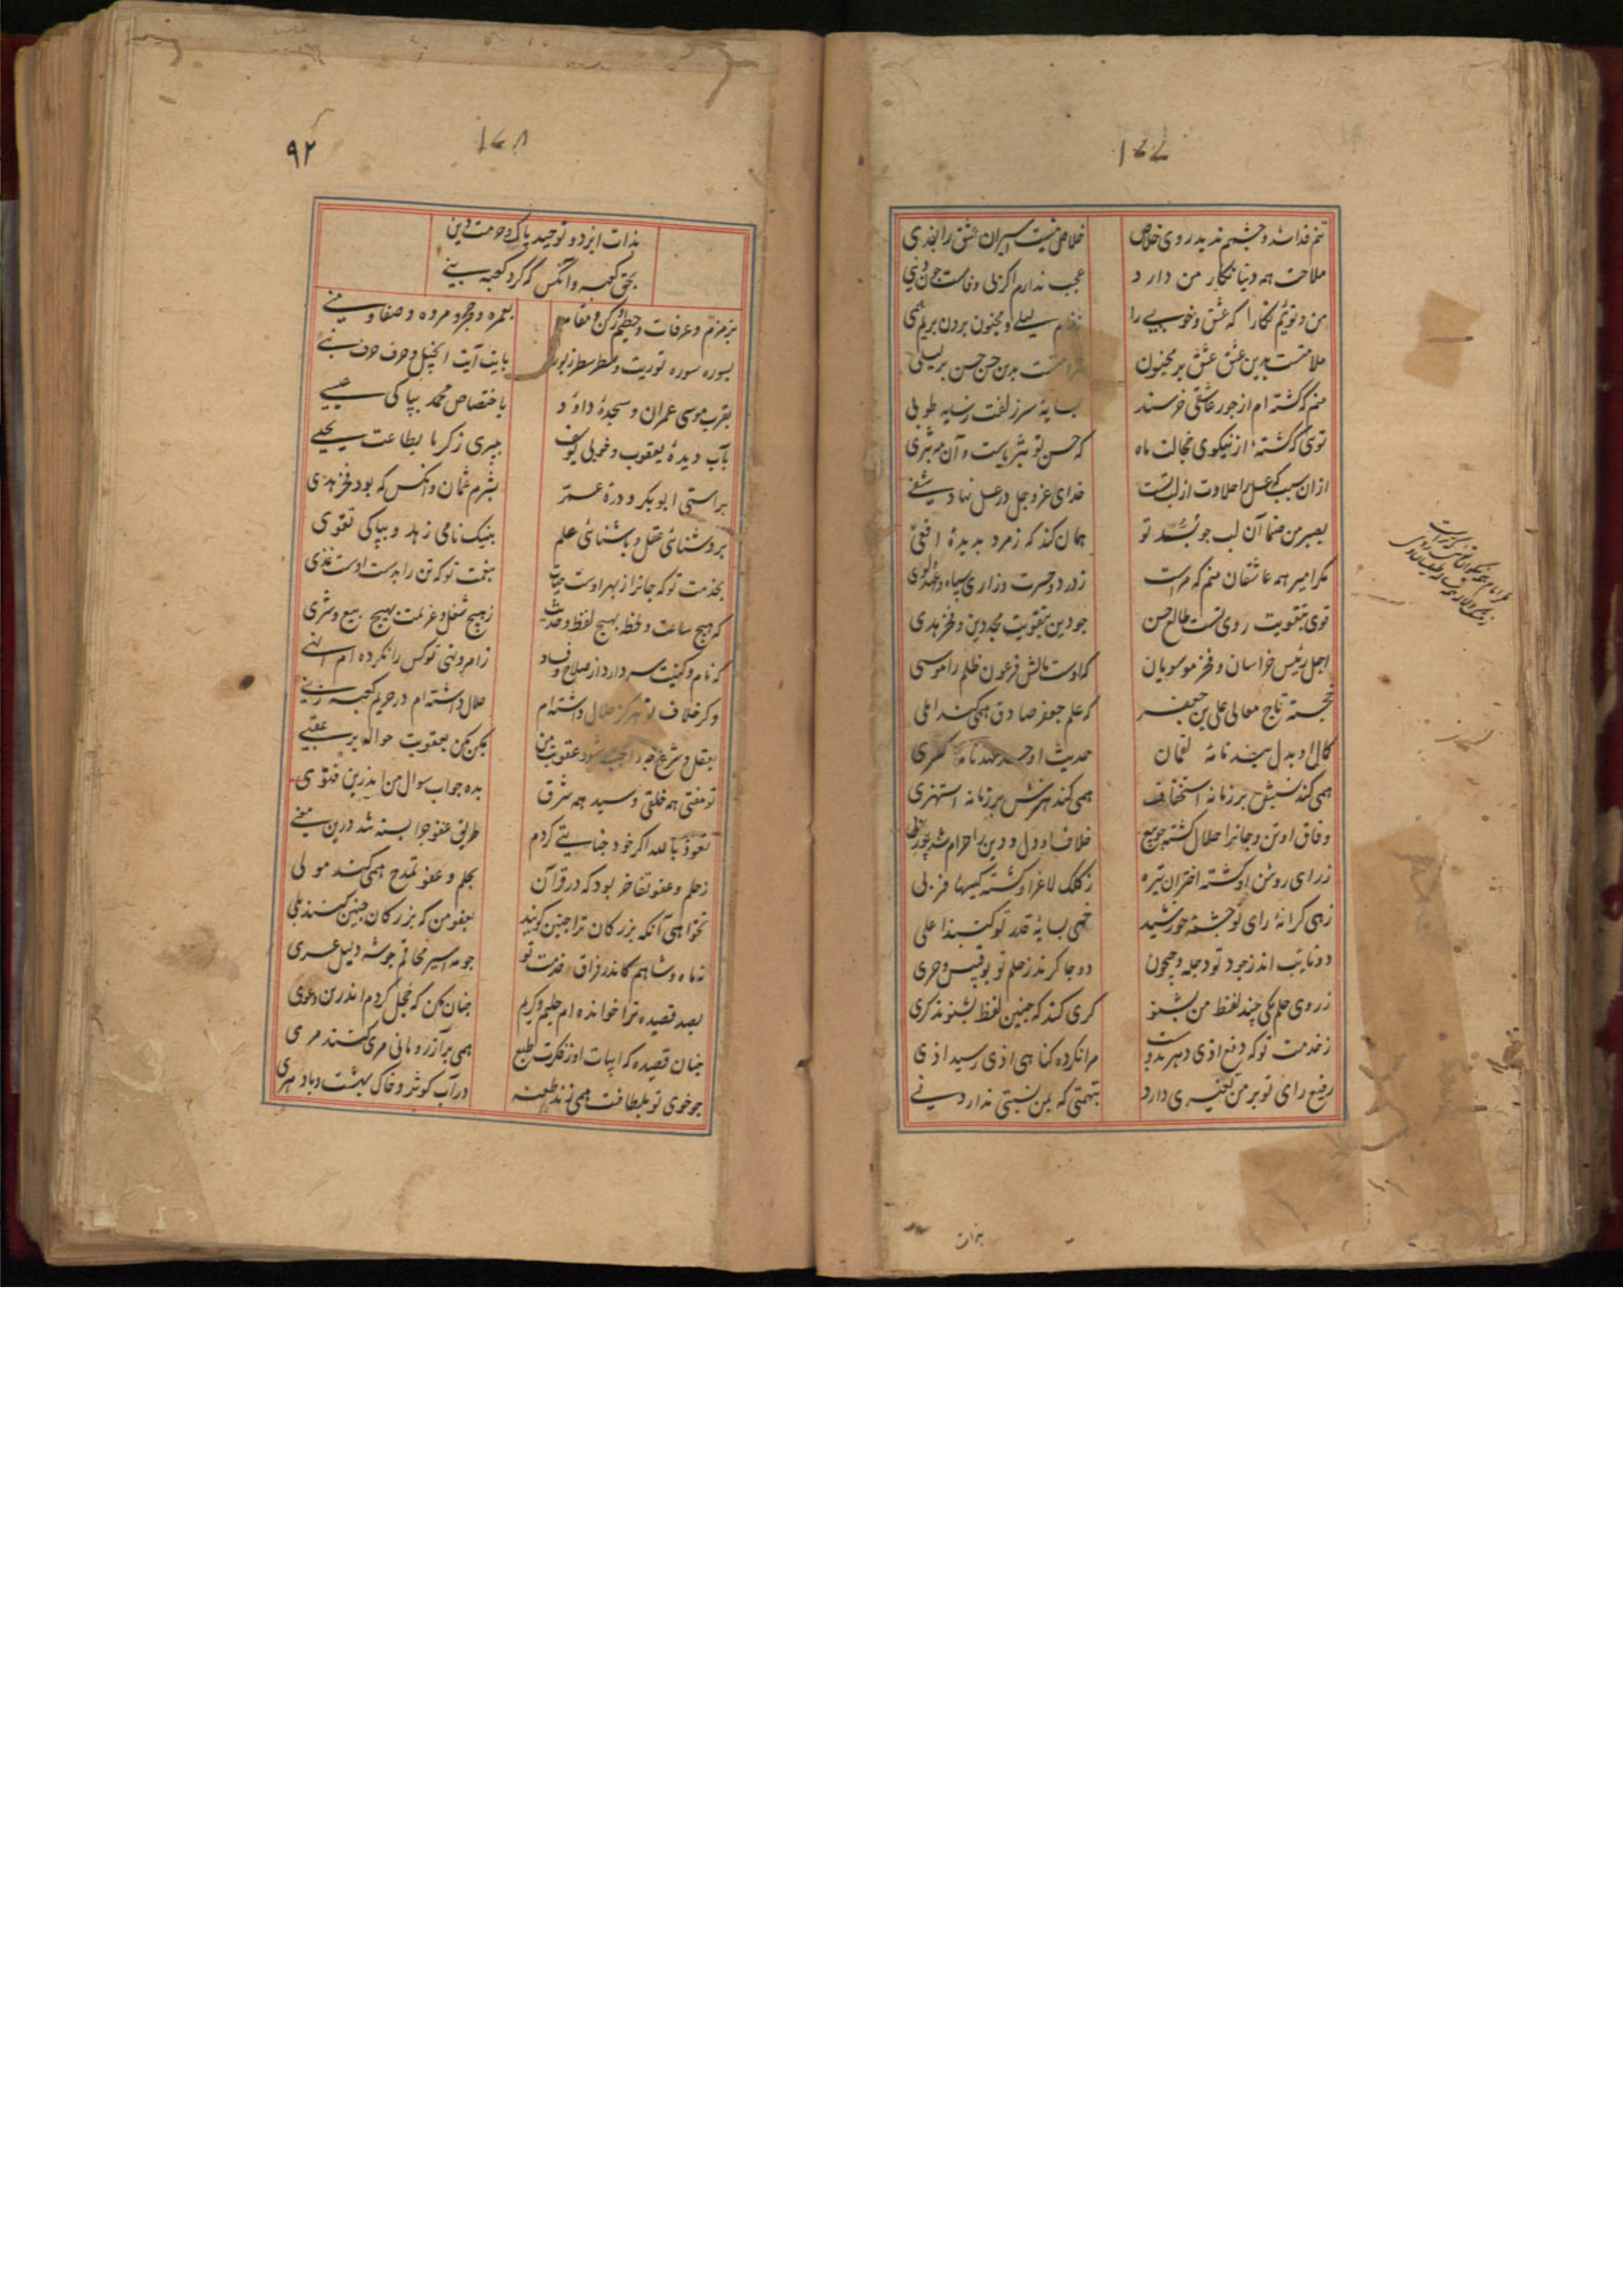 تنم فدا شد و چشمم ندید روی خلاص
خلاص نیست اسیران عشق را بفدی
ملاحت همه دنیا نگار من دارد
عجب ندارم اگر بی وفاست چون دنیی
من و توئیم نگارا که عشق و خوبی را
ز نام لیلی و مجنون برون بریم همی
ملامتست بدین عشق عشق بر مجنون
غرامتست بدین حسن حسن بر لیلی
منم که گشته ام از جور عاشقی خرسند
بسایهٔ سر زلفت ز سایه طوبی
توی که گشتهٔ از نیکوی خجالت ماه
که حسن تو
ازان سبب که عسل را حلاوت از لب تست
خدای عز و جل در عسل نهاد شفی
بصبر من صنما آن لب چو بسد تو
همان کند که زمرد بدیدهٔ افعی
مگر امیر همه عاشقان منم که مراست
ز درد و حسرت و زاری سپاه و
توی بتقویت روی تست طالع حسن
چو دین بتقویت مجد دین و فخر هدی
اجل رئیس خراسان و فخر موسویان
که اوست مالش فرعون ظلم را موسی
خجسته تاج معالی علی بن جعفر
که علم جعفر صادق همی کند املی
کمال او بدل پند نامهٔ لقمان
حدیث او عهد نامهٔ کسری
همی کند بر زمانه استخفاف
همی کند هنرش بر زمانه استهزی
وفاق او تن و جانرا حلال گشته چو بیع
خلاف او دل و دین را حرام شد چو ربی
ز رای روشن او گشته اختران تیره
ز کلک لاغر او گشته کیسها فربی
زهی کرانهٔ رای تو چشمهٔ خورشید
خهی بسایهٔ قدر تو گنبد اعلی
دو نایب اند ز جود تو دجله و جیحون
دو چاکرند ز حلم تو بوقبیس و حری
ز روی حلم یکی چند لفظ من بشنو
کری کند که چنین لفظ بشنوذ کری
ز خدمت تو که دفع اذی و هر بد
مرا نکرده گناهی اذی رسید اذی
رفیع رای تو بر من تغیری دارد
بتهمتی که بمن نسبتی ندارد نی
۹۲
بذات ایزد و توحید پاک و حرمت دین
بحق کعبه و آنکس که کرد کعبه بنی
بزمزم و عرفات و حطیم و رکن و مقام
بعمره و حجر و مروه و صفا و منی
بسوره سوره توریت و سطر سطر زبور
بآیت آیت انجیل و حرف حرف نبی
بقرب موسی عمران و سجدهٔ داؤد
باختصاص محمد بپاکی عیسی
بآب دیدهٔ یعقوب و خوبی یوسف
بپیری زکریا بطاعت یحیی
براستی ابوبکر و درهٔ عمر
بشرم عثمان و آنکس که بود فخر هدی
بروشنائ عقل و بآشنائ علم
بنیک نامی زهد و بپاکی تقوی
بخدمت تو که جانرا ز بهر اوست حیات
بنعمت تو که تن را بدست اوست غذی
که هیچ ساعت و لحظه بهیچ لفظ و حدیث
ز هیچ شغل و عزیمت بهیچ بیع و شری
که نام و کنیت سر دارد از صلاح و فساد
ز امر و نهی تو کس را نکرده ام انهی
وگر خلاف تو هرگز حلال داشته ام
حلال داشته ام در حریم کعبه زنی
بعقل و شرع چو واجب شود عقوبت من
بکن بکن بعقوبت حواله بر عقبی
تو مفتی همه خلقی و سید همه شرق
بده جواب سوال من اندرین فتوی
نعوذ بالله اگر خود جنایتی کردم
طریق عفو چرا بسته شد درین معنی
ز حلم و عفو تفاخر بود که در قرآن
بحلم و عفو تمدح همی کند مولی
نخواهی آنکه بزرگان ترا چنین گویند
بعفو من که بزرگان چنین کنند بلی
بصد قصیده ترا خوانده ام حلیم و کریم
چنان مکن که خجل گردم اندرین دعوی
چنان قصیده که ابیات او ز فکرت طبع
همی برآزر و مانی مری کنند مری
چو خوی تو بلطافت همی زند طعنه
در آب کوثر و خاک بهشت و باد